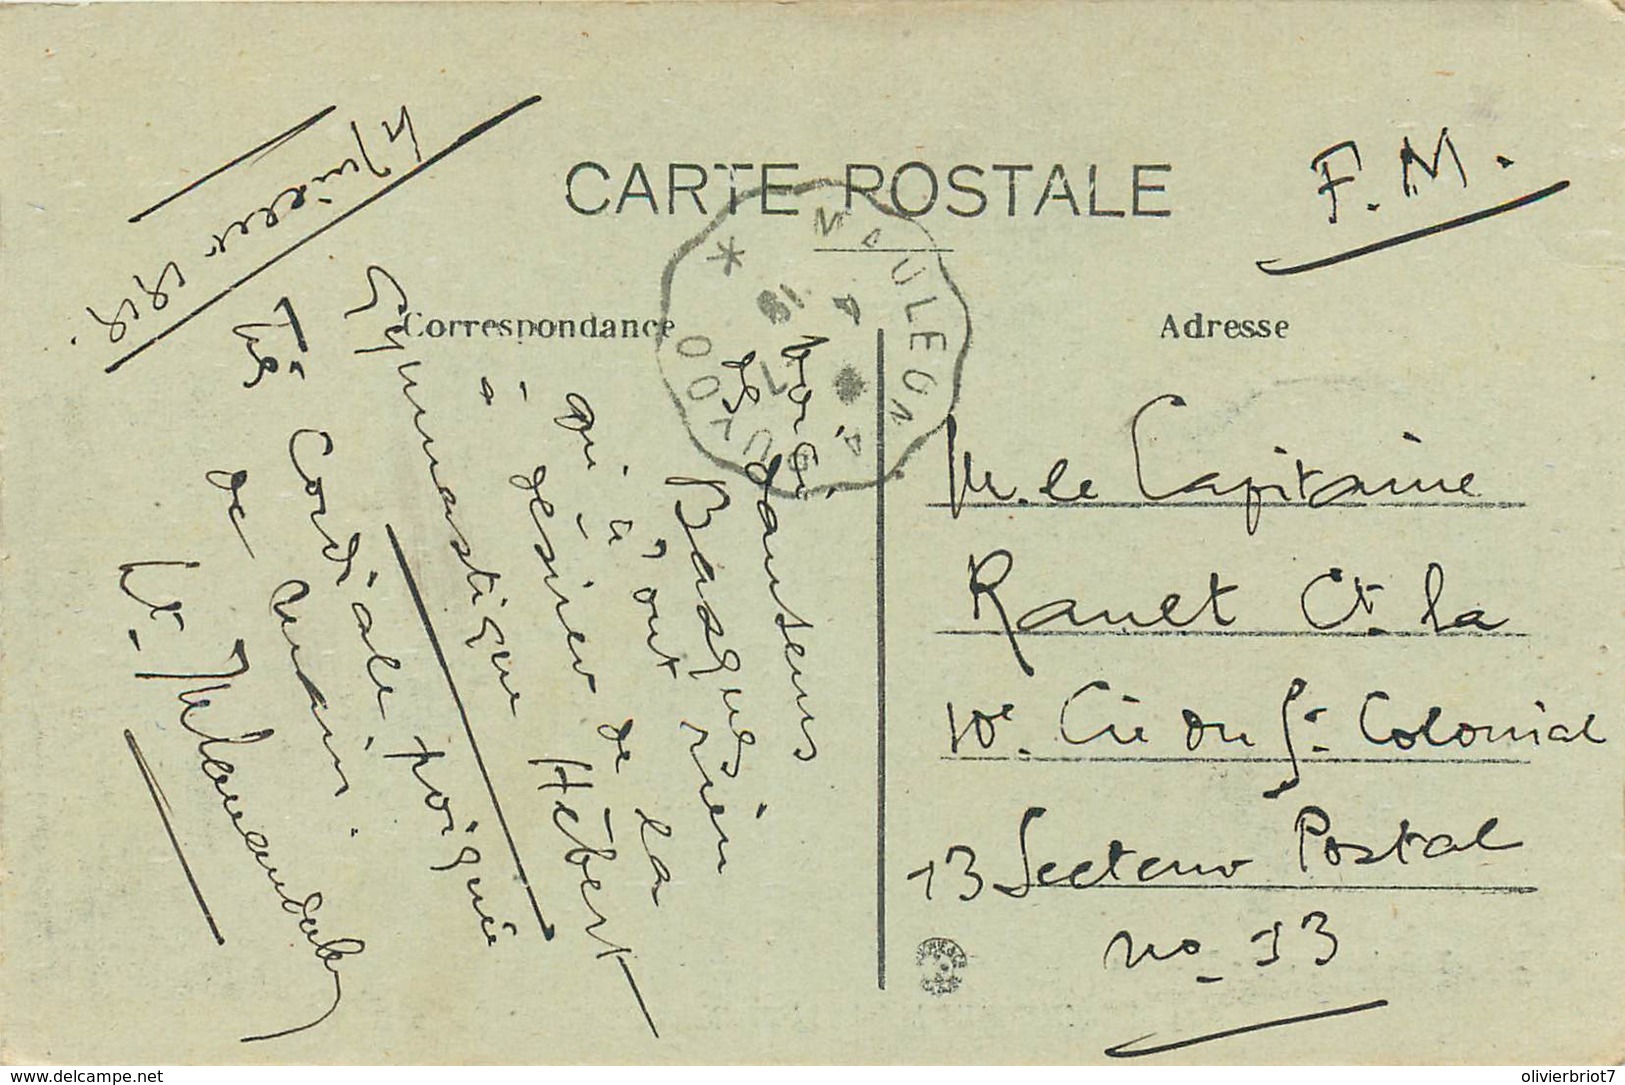 CARTE POSTALE
F.M.
Correspondance
Adresse
MAULEON
4 Juillet 1918.
Voici
de danseurs
Basques
qui n'ont rien
à désirer de la
gymnastique Hébert
Très Cordiale poignée
de main.
M. le Capitaine
Ranet Ct. la
10e. Cie du St. Colonial
13 Secteur Postal
no. 13
www.delcampe.net
olivierbriot7